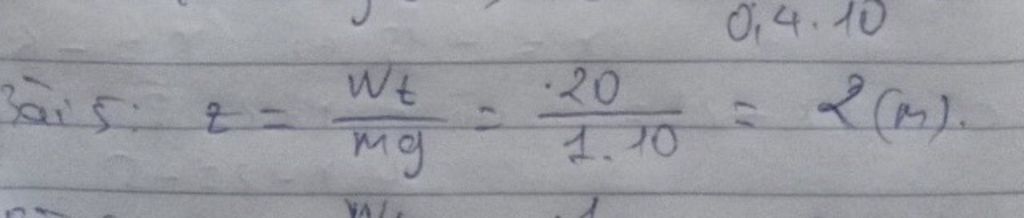 0,4.10
Bài 5: z = Wt / mg = 20 / 1.10 = 2 (m).